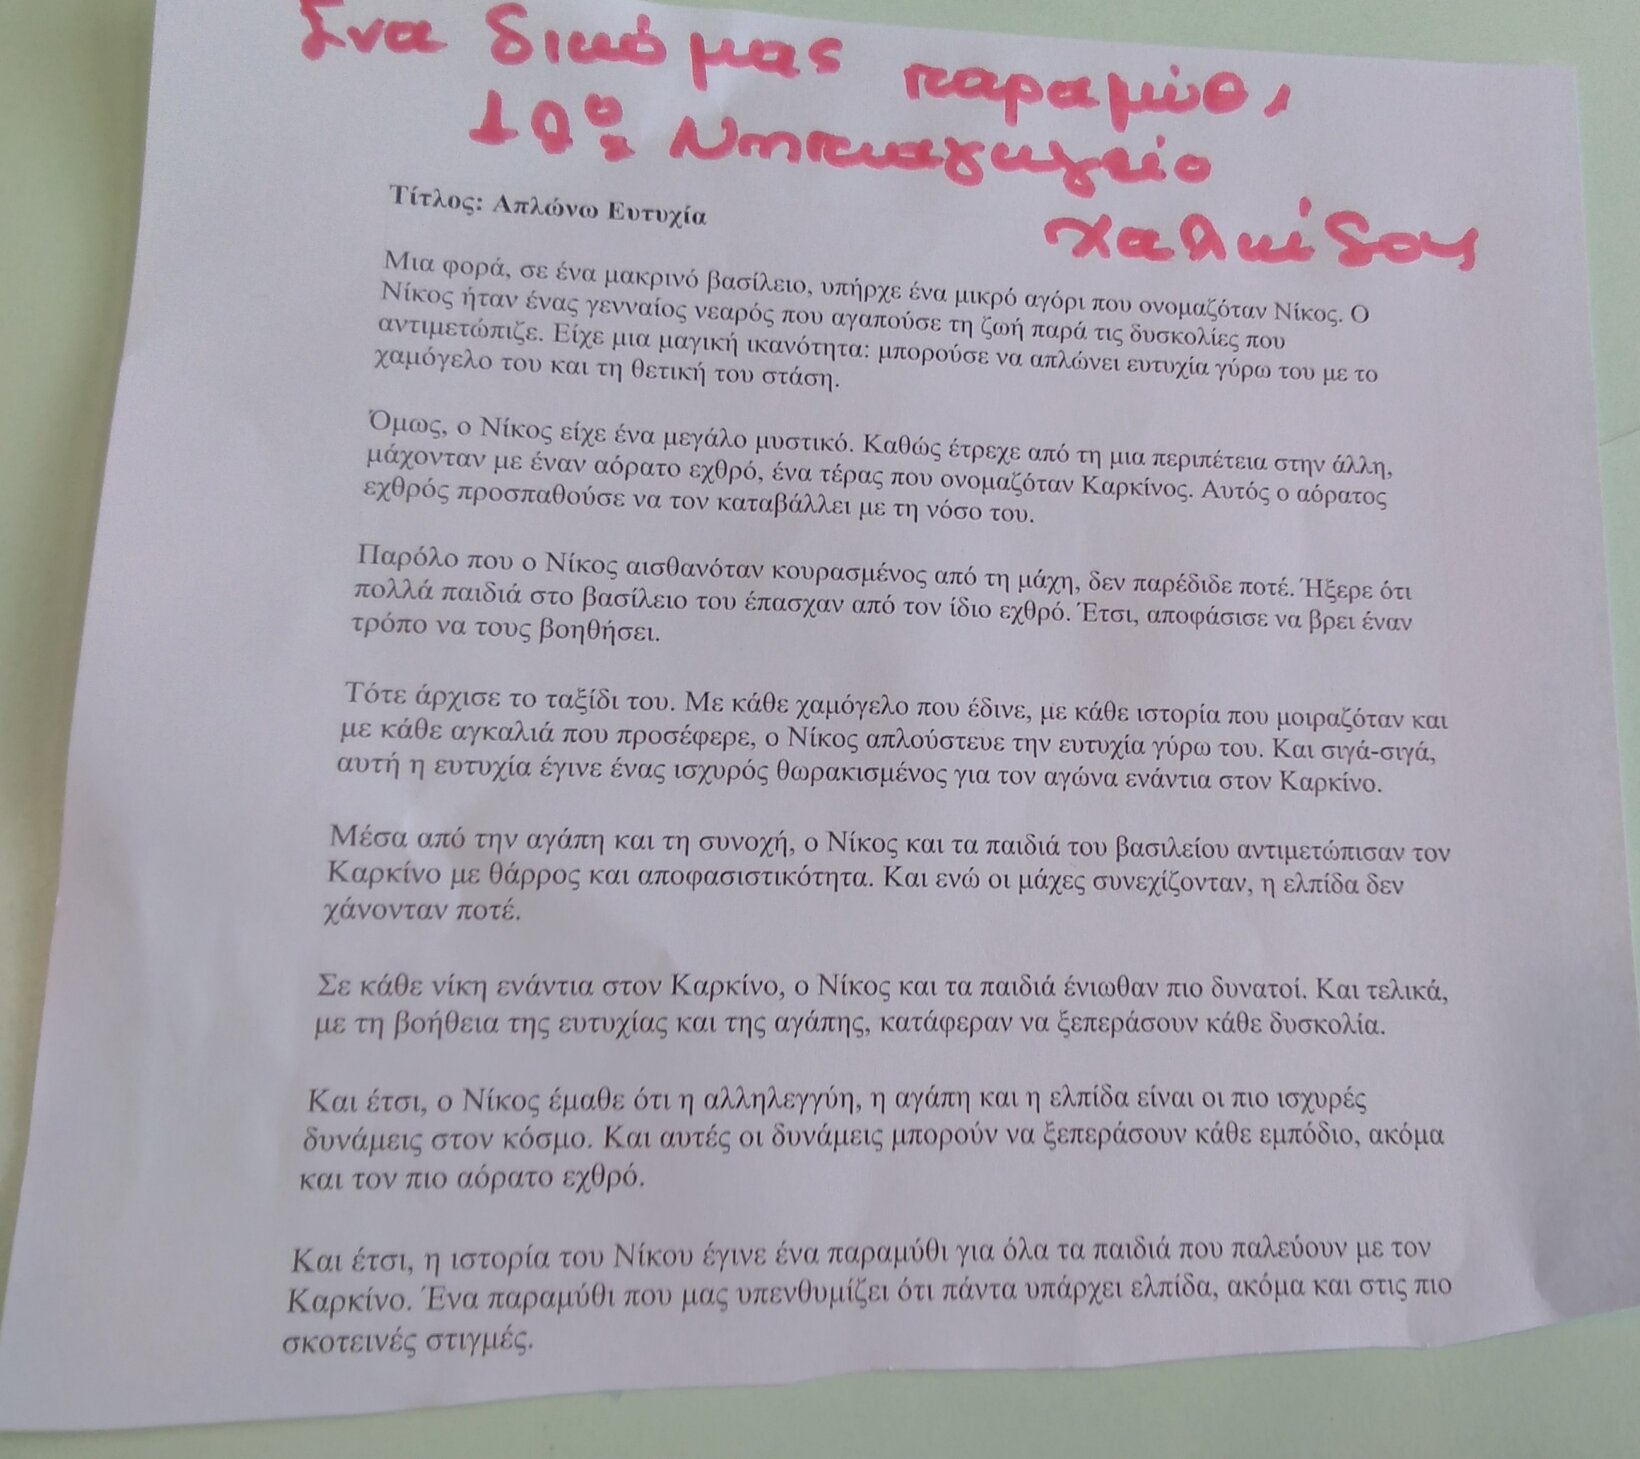 Ένα δικό μας παραμύθι
10º Νηπιαγωγείο
Χαλκίδας
Τίτλος: Απλώνω Ευτυχία
Μια φορά, σε ένα μακρινό βασίλειο, υπήρχε ένα μικρό αγόρι που ονομαζόταν Νίκος. Ο
Νίκος ήταν ένας γενναίος νεαρός που αγαπούσε τη ζωή παρά τις δυσκολίες που
αντιμετώπιζε. Είχε μια μαγική ικανότητα: μπορούσε να απλώνει ευτυχία γύρω του με το
χαμόγελο του και τη θετική του στάση.
Όμως, ο Νίκος είχε ένα μεγάλο μυστικό. Καθώς έτρεχε από τη μια περιπέτεια στην άλλη,
μάχονταν με έναν αόρατο εχθρό, ένα τέρας που ονομαζόταν Καρκίνος. Αυτός ο αόρατος
εχθρός προσπαθούσε να τον καταβάλλει με τη νόσο του.
Παρόλο που ο Νίκος αισθανόταν κουρασμένος από τη μάχη, δεν παρέδιδε ποτέ. Ήξερε ότι
πολλά παιδιά στο βασίλειο του έπασχαν από τον ίδιο εχθρό. Έτσι, αποφάσισε να βρει έναν
τρόπο να τους βοηθήσει.
Τότε άρχισε το ταξίδι του. Με κάθε χαμόγελο που έδινε, με κάθε ιστορία που μοιραζόταν και
με κάθε αγκαλιά που προσέφερε, ο Νίκος απλούστευε την ευτυχία γύρω του. Και σιγά-σιγά,
αυτή η ευτυχία έγινε ένας ισχυρός θωρακισμένος για τον αγώνα ενάντια στον Καρκίνο.
Μέσα από την αγάπη και τη συνοχή, ο Νίκος και τα παιδιά του βασιλείου αντιμετώπισαν τον
Καρκίνο με θάρρος και αποφασιστικότητα. Και ενώ οι μάχες συνεχίζονταν, η ελπίδα δεν
χάνονταν ποτέ.
Σε κάθε νίκη ενάντια στον Καρκίνο, ο Νίκος και τα παιδιά ένιωθαν πιο δυνατοί. Και τελικά,
με τη βοήθεια της ευτυχίας και της αγάπης, κατάφεραν να ξεπεράσουν κάθε δυσκολία.
Και έτσι, ο Νίκος έμαθε ότι η αλληλεγγύη, η αγάπη και η ελπίδα είναι οι πιο ισχυρές
δυνάμεις στον κόσμο. Και αυτές οι δυνάμεις μπορούν να ξεπεράσουν κάθε εμπόδιο, ακόμα
και τον πιο αόρατο εχθρό.
Και έτσι, η ιστορία του Νίκου έγινε ένα παραμύθι για όλα τα παιδιά που παλεύουν με τον
Καρκίνο. Ένα παραμύθι που μας υπενθυμίζει ότι πάντα υπάρχει ελπίδα, ακόμα και στις πιο
σκοτεινές στιγμές.